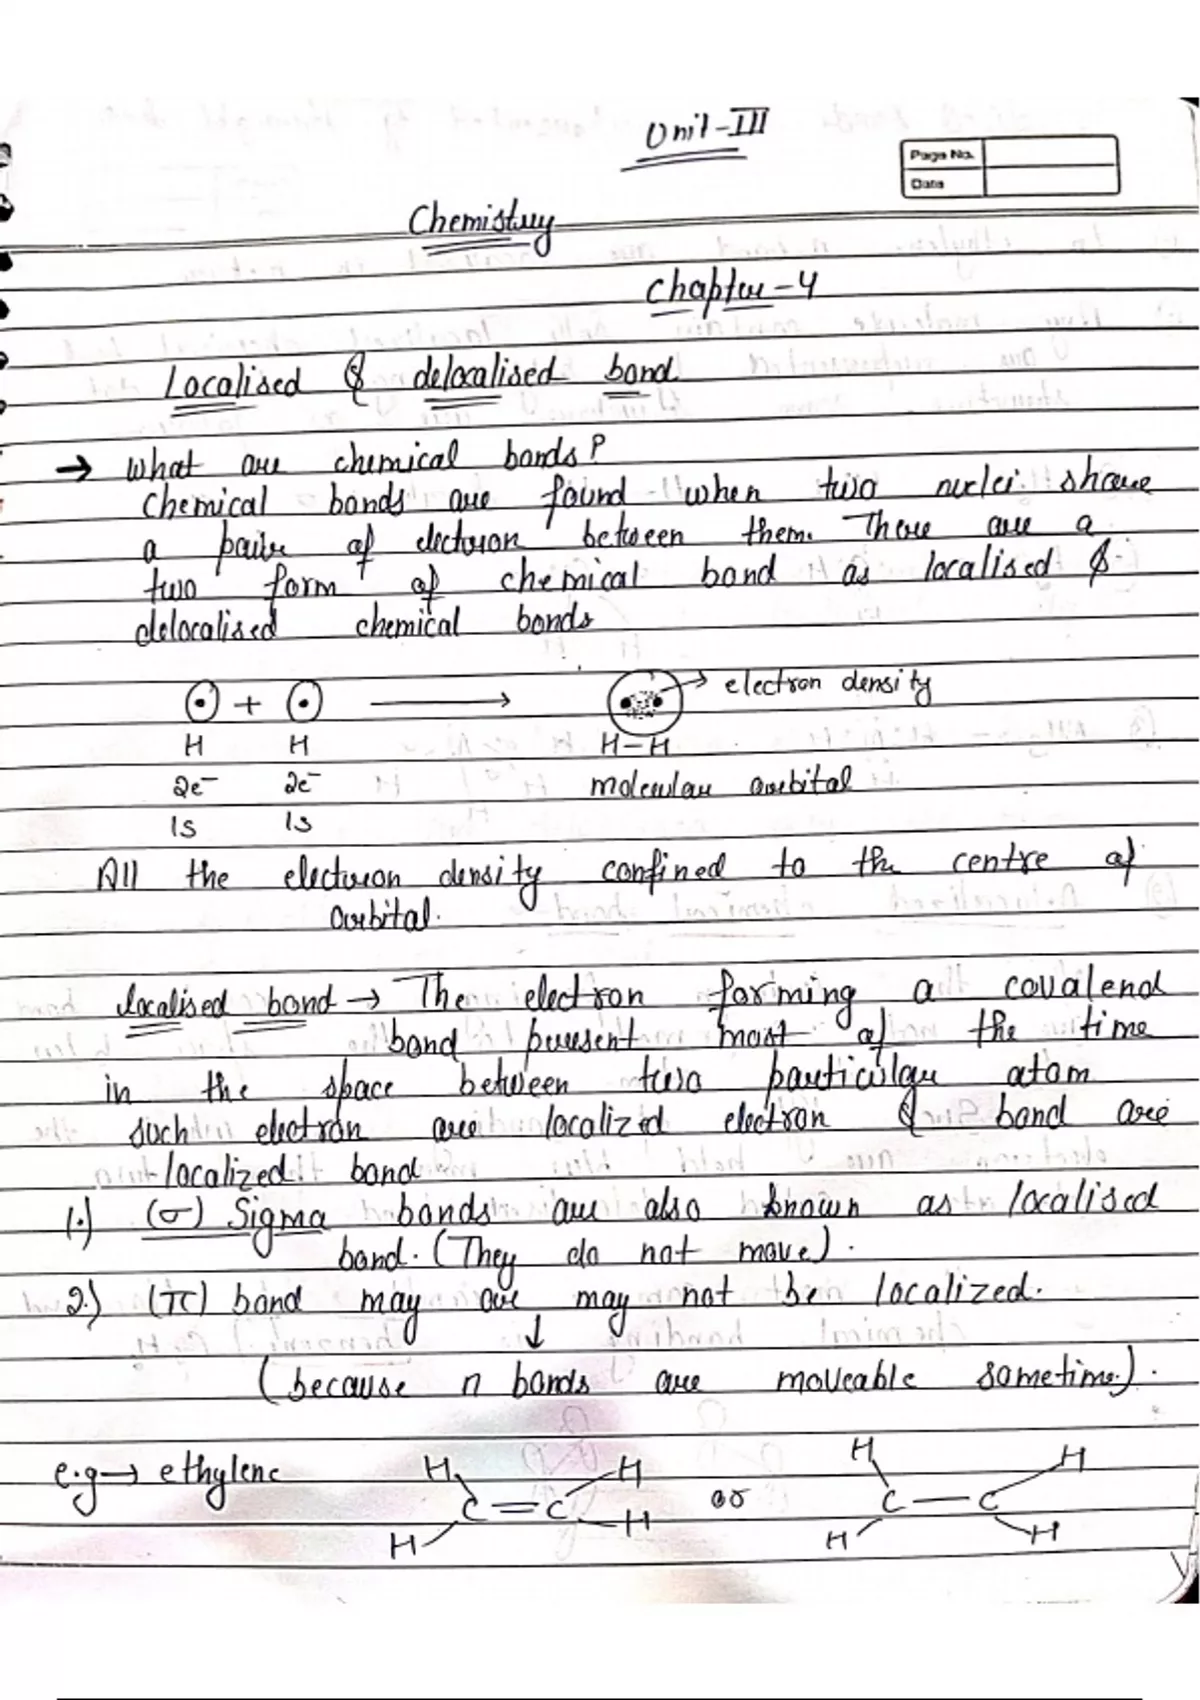 Unit-III
Page No.
Date
Chemistry
Chapter-4
Localised & delocalised bond
→ What are chemical bonds?
Chemical bonds are found when two nuclei share
a pair of electron between them. There are a
two form of chemical bond as localised &
delocalised chemical bonds
+ → → electron density
H H H-H
2e⁻ 2e⁻ molecular orbital
1s 1s
All the electron density confined to the centre of
orbital.
localised bond → The electron forming a covalend
bond present most of the time
in the space between two particular atom
such electron are localized electron & bond are
localized bond
1.) (σ) Sigma bonds are also known as localised
band. (They do not move).
2.) (π) bond may are may not be localized.
↓
(because π bonds are moveable sometime).
e.g → ethylene
H H H H
C=C or C-C
H H H H